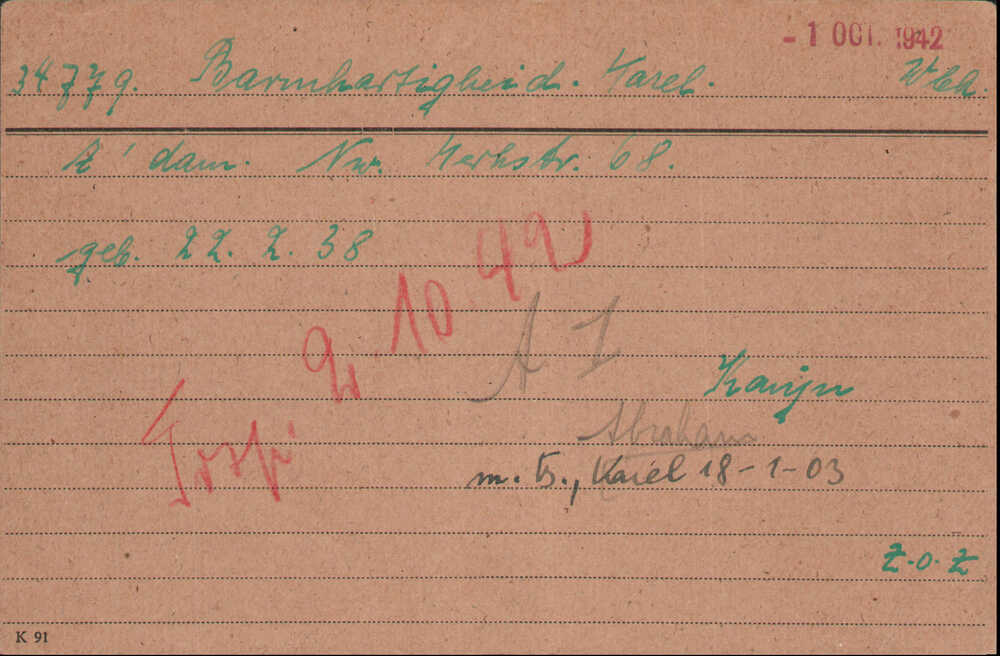 - 1 OCT. 1942
34779. Barmhartigheid. Karel. Wbk.
A'dam. Nw. Kerkstr. 68.
geb. 22. 2. 38
Trsp. 2.10.42
A 1
Konijn
Abraham
m. B., Karel 18-1-03
Z.O.Z
K 91